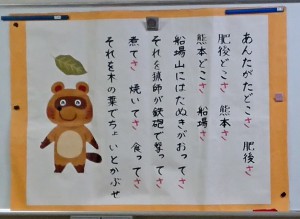 あんたがたどこさ 肥後さ
肥後どこさ 熊本さ
熊本どこさ 船場さ
船場山にはたぬきがおってさ
それを猟師が鉄砲で撃ってさ
煮てさ 焼いてさ 食ってさ
それを木の葉でちょいとかぶせ